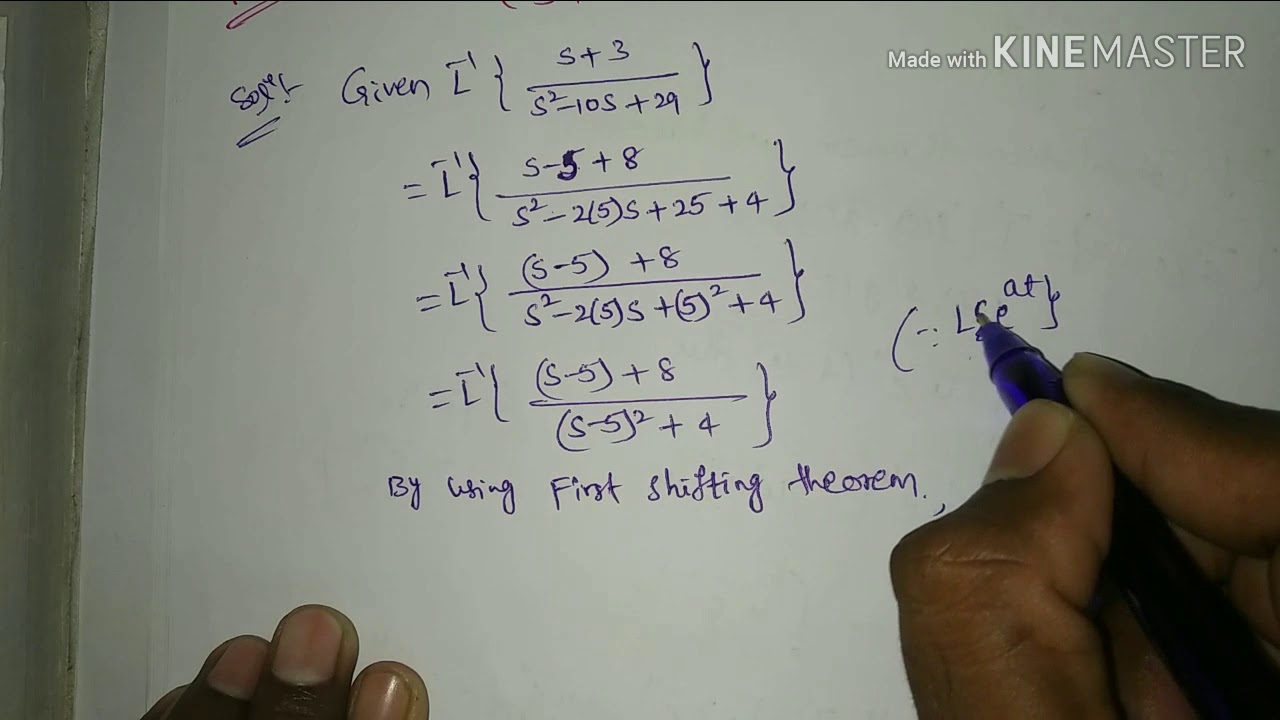 Made with KINEMASTER
Sol:- Given L⁻¹ { s+3 / s²-10s+29 }
= L⁻¹ { s-5+8 / s²-2(5)s+25+4 }
= L⁻¹ { (s-5) +8 / s²-2(5)s+(5)²+4 }
(∵ L{e^at}
= L⁻¹ { (s-5)+8 / (s-5)²+4 }
By using First shifting theorem.,